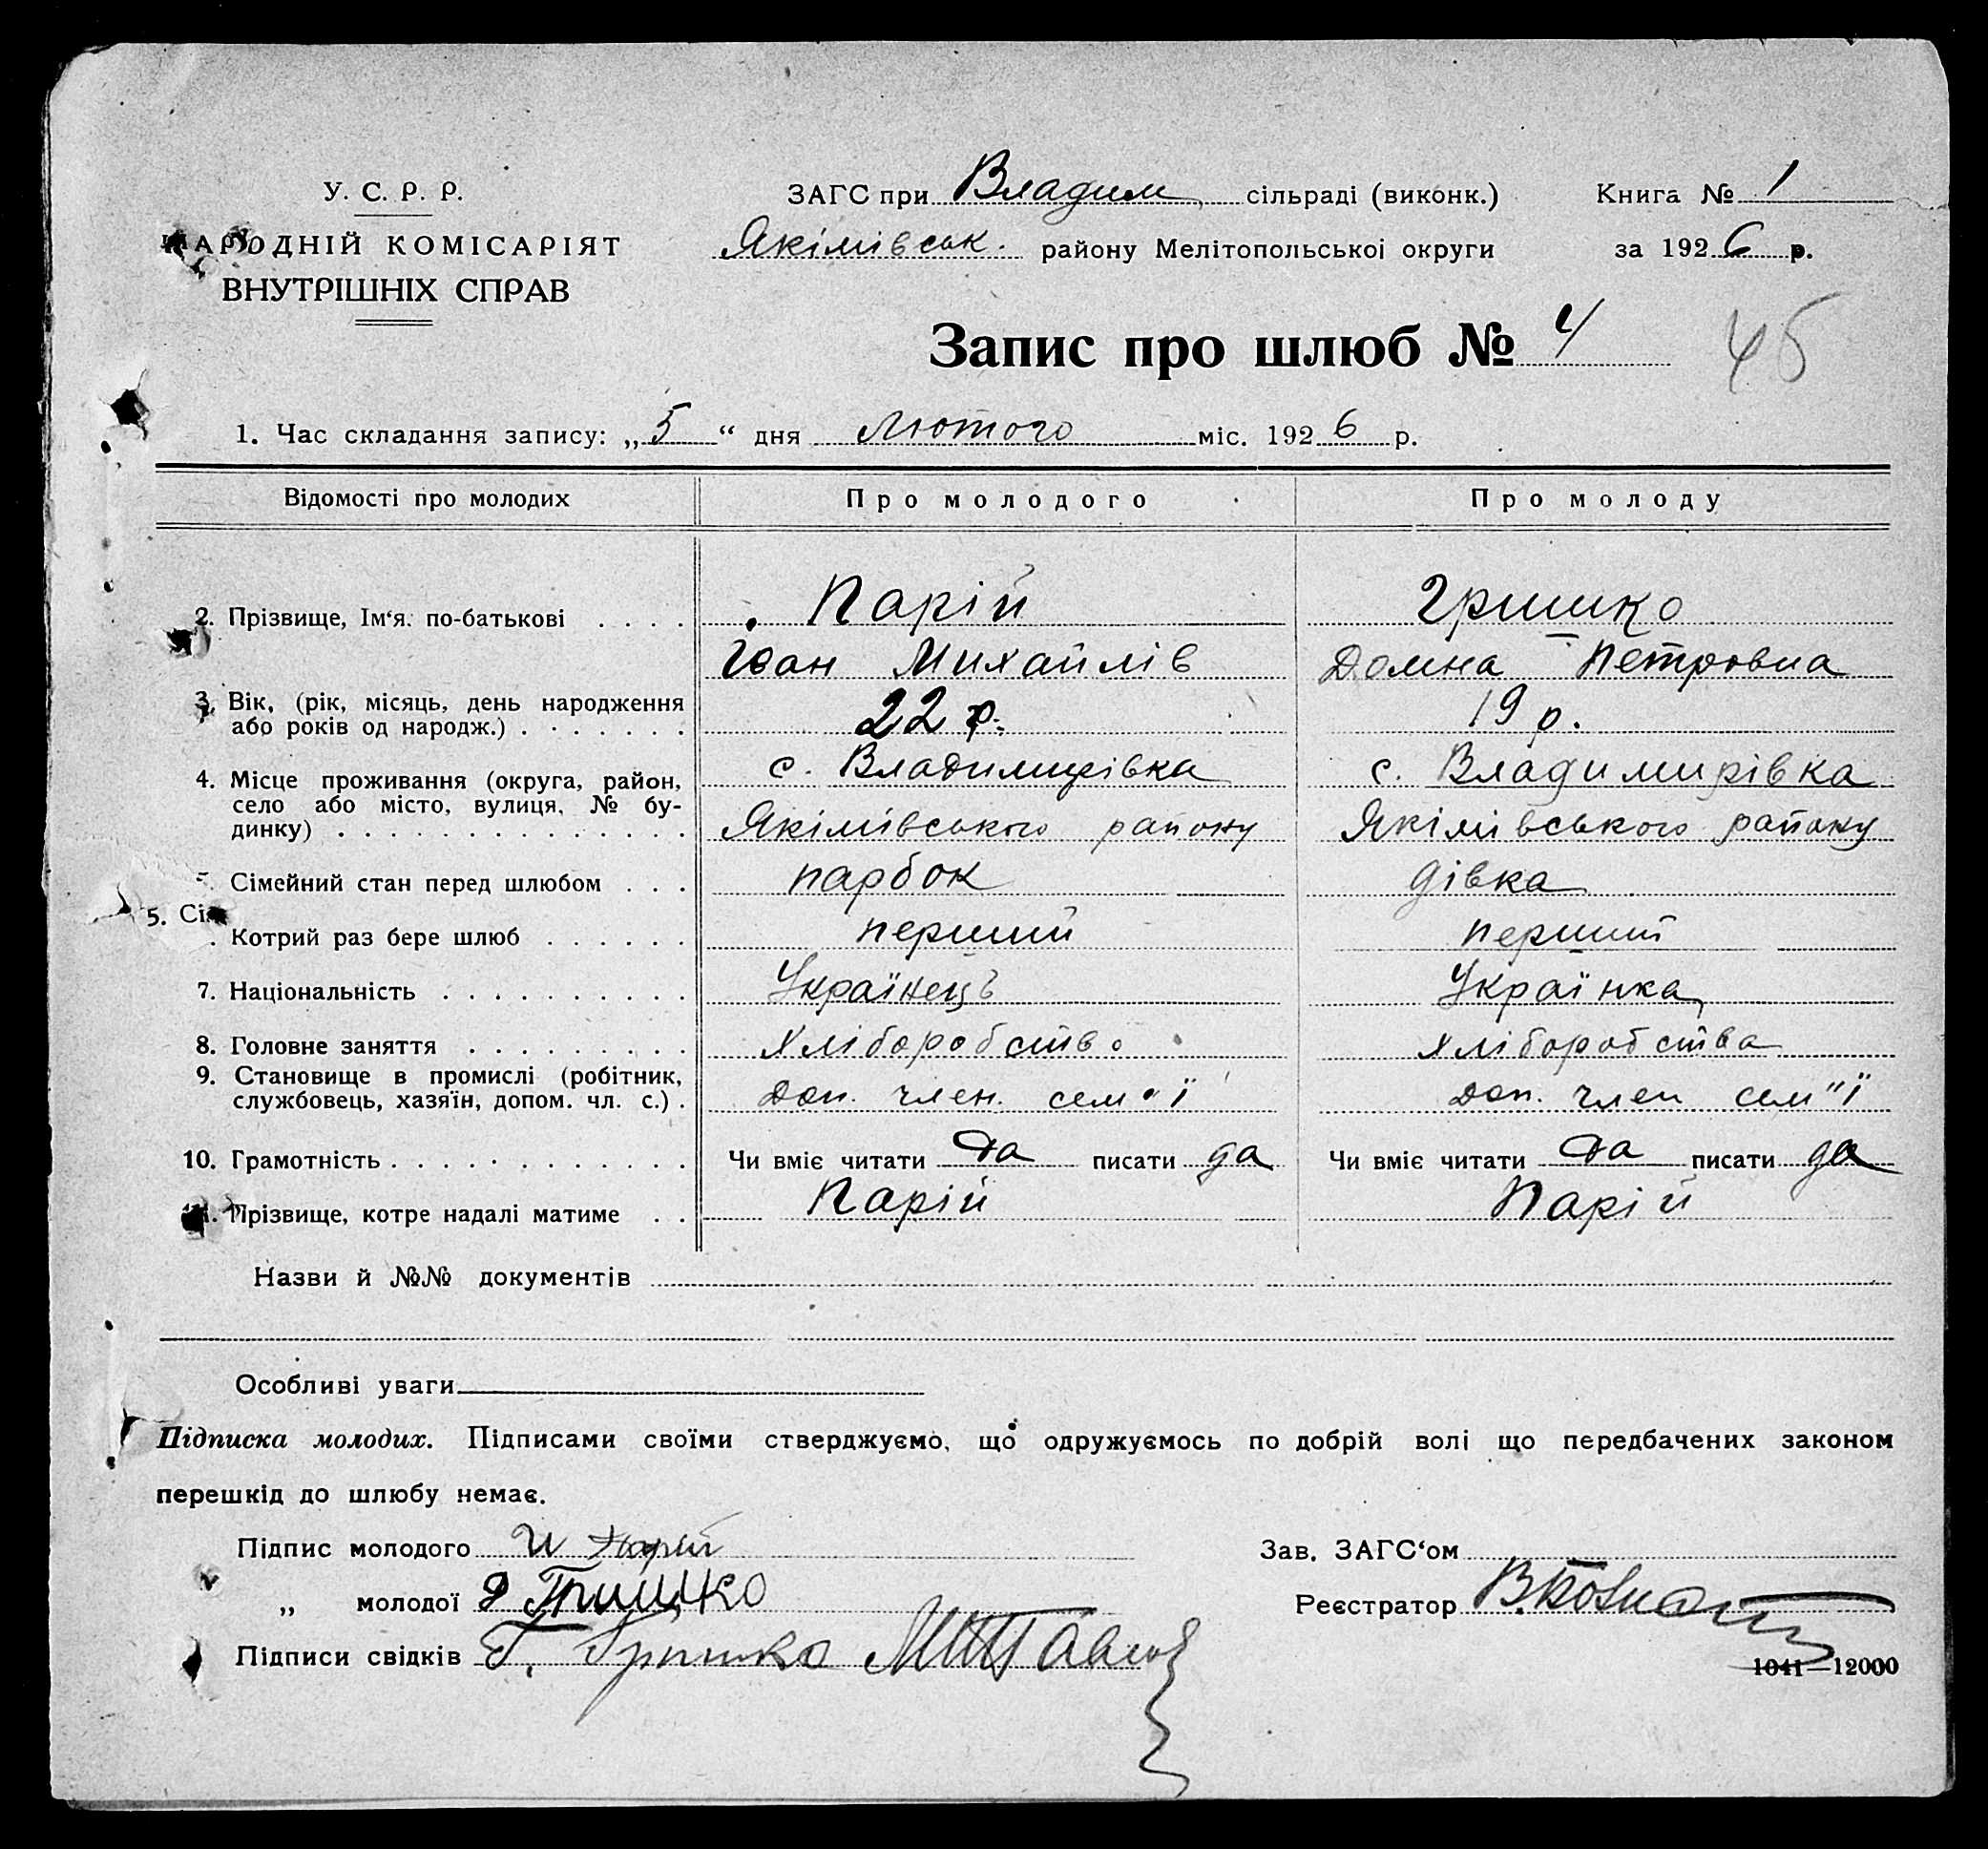 У. С. Р. Р.
НАРОДНІЙ КОМІСАРІЯТ
ВНУТРІШНІХ СПРАВ
ЗАГС при Владим. сільраді (виконк.) Книга № 1
Якімівськ. району Мелітопольської округи за 1926 р.
Запис про шлюб № 4
45
1. Час складання запису: „5“ дня Лютого міс. 1926 р.
Відомості про молодих Про молодого Про молоду
2. Прізвище, Ім‘я. по-батькові . . . . Парій Гришко
Іван Михайлів Домна Петровна
3. Вік, (рік, місяць, день народження
або років од народж.) . . . . . . . 22 р. 19 р.
4. Місце проживання (округа, район, с. Владимирівка с. Владимирівка
село або місто, вулиця, № бу-
динку) . . . . . . . . . . . . . . Якімівського району Якімівського району
5. Сімейний стан перед шлюбом . . . парбок дівка
5. Сі
. Котрий раз бере шлюб . . . . . . перший перший
7. Національність . . . . . . . . . . Українець Українка
8. Головне заняття . . . . . . . . . Хліборобство хліборобства
9. Становище в промислі (робітник,
службовець, хазяїн, допом. чл. с.) . Доп. член. сем"ї Доп. член сем"ї
10. Грамотність . . . . . . . . . . . . Чи вміє читати да писати да Чи вміє читати да писати да
11. Прізвище, котре надалі матиме . . Парій Парій
Назви й №№ документів
Особливі уваги
Підписка молодих. Підписами своїми стверджуємо, що одружуємось по добрій волі що передбачених законом
перешкід до шлюбу немає.
Підпис молодого И Парій Зав. ЗАГС‘ом
„ молодої Д Гришко Реєстратор
Підписи свідків Г. Гришко
1041—12000